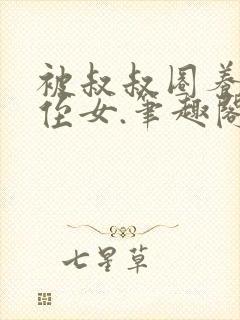 被叔叔圈养
侄女.笔趣阁
七星草